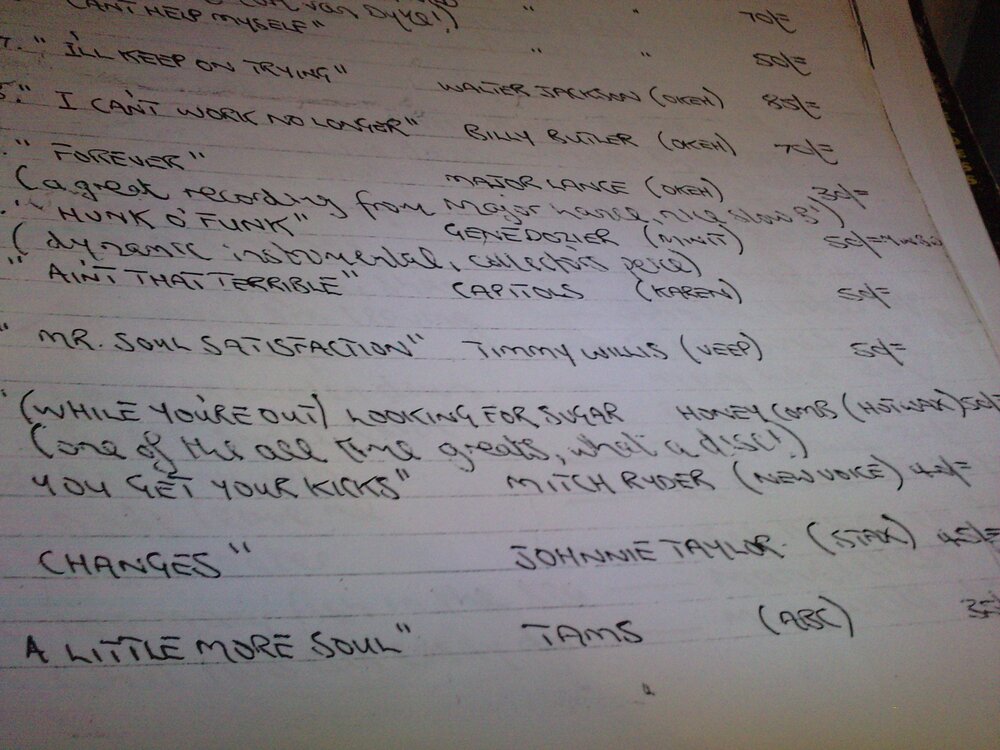 van Dyke!)
CAN'T HELP MYSELF" " " 70/=
7. " I'LL KEEP ON TRYING" " " 50/=
" I CAN'T WORK NO LONGER" WALTER JACKSON (OKEH) 85/=
. " FOREVER" BILLY BUTLER (OKEH) 70/=
(a great recording from Major Lance, nice slow 8')
" HUNK O' FUNK" MAJOR LANCE (OKEH) 30/=
(dynamic instrumental, collectors peice)
" AIN'T THAT TERRIBLE" GENE DOZIER (MINIT) 50/=
CAPITOLS (KAREN) 50/=
" MR. SOUL SATISFACTION" TIMMY WILLIS (VEEP) 50/=
" (WHILE YOU'RE OUT) LOOKING FOR SUGAR HONEY COMB (HOTWAX) 50/=
(one of the all time greats, what a disc!)
YOU GET YOUR KICKS" MITCH RYDER (NEW VOICE) 40/=
CHANGES" JOHNNIE TAYLOR. (STAX) 45/=
A LITTLE MORE SOUL" TAMS (ABC) 35/